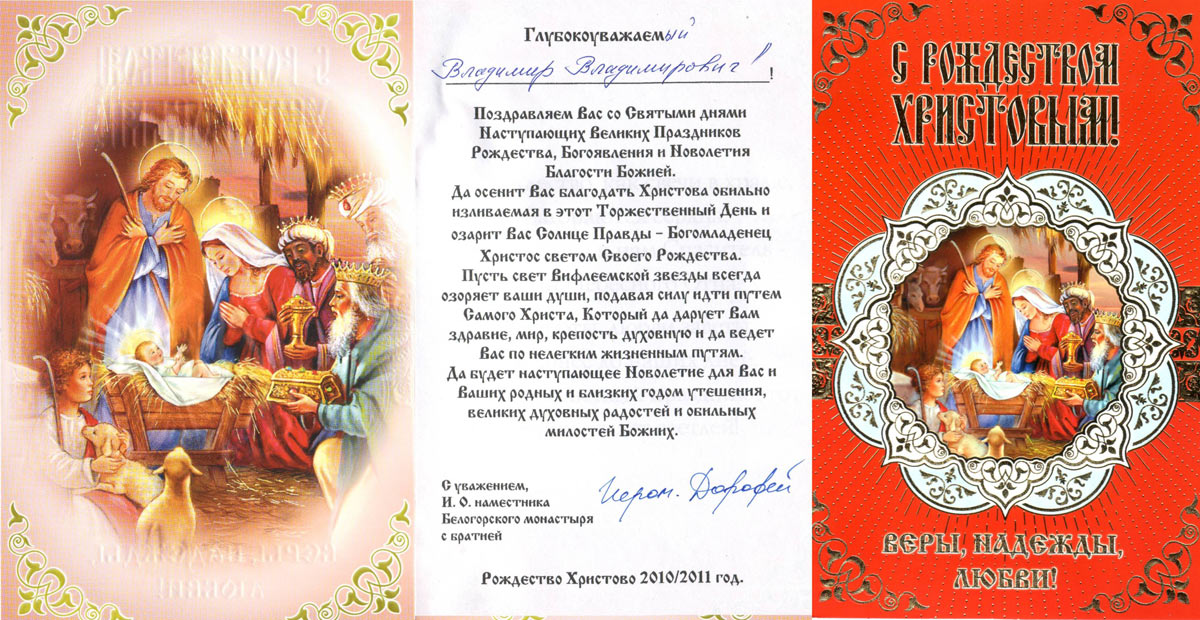 Глубокоуважаемый
Владимир Владимирович!
Поздравляем Вас со Святыми днями
Наступающих Великих Праздников
Рождества, Богоявления и Новолетия
Благости Божией.
Да осенит Вас благодать Христова обильно
изливаемая в этот Торжественный День и
озарит Вас Солнце Правды – Богомладенец
Христос светом Своего Рождества.
Пусть свет Вифлеемской звезды всегда
озоряет ваши души, подавая силу идти путем
Самого Христа, Который да дарует Вам
здравие, мир, крепость духовную и да ведет
Вас по нелегким жизненным путям.
Да будет наступающее Новолетие для Вас и
Ваших родных и близких годом утешения,
великих духовных радостей и обильных
милостей Божиих.
С уважением,
И. О. наместника
Белогорского монастыря
с братией
Иером. Дорофей
Рождество Христово 2010/2011 год.
С РОЖДЕСТВОМ
ХРИСТОВЫМ!
ВЕРЫ, НАДЕЖДЫ,
ЛЮБВИ!